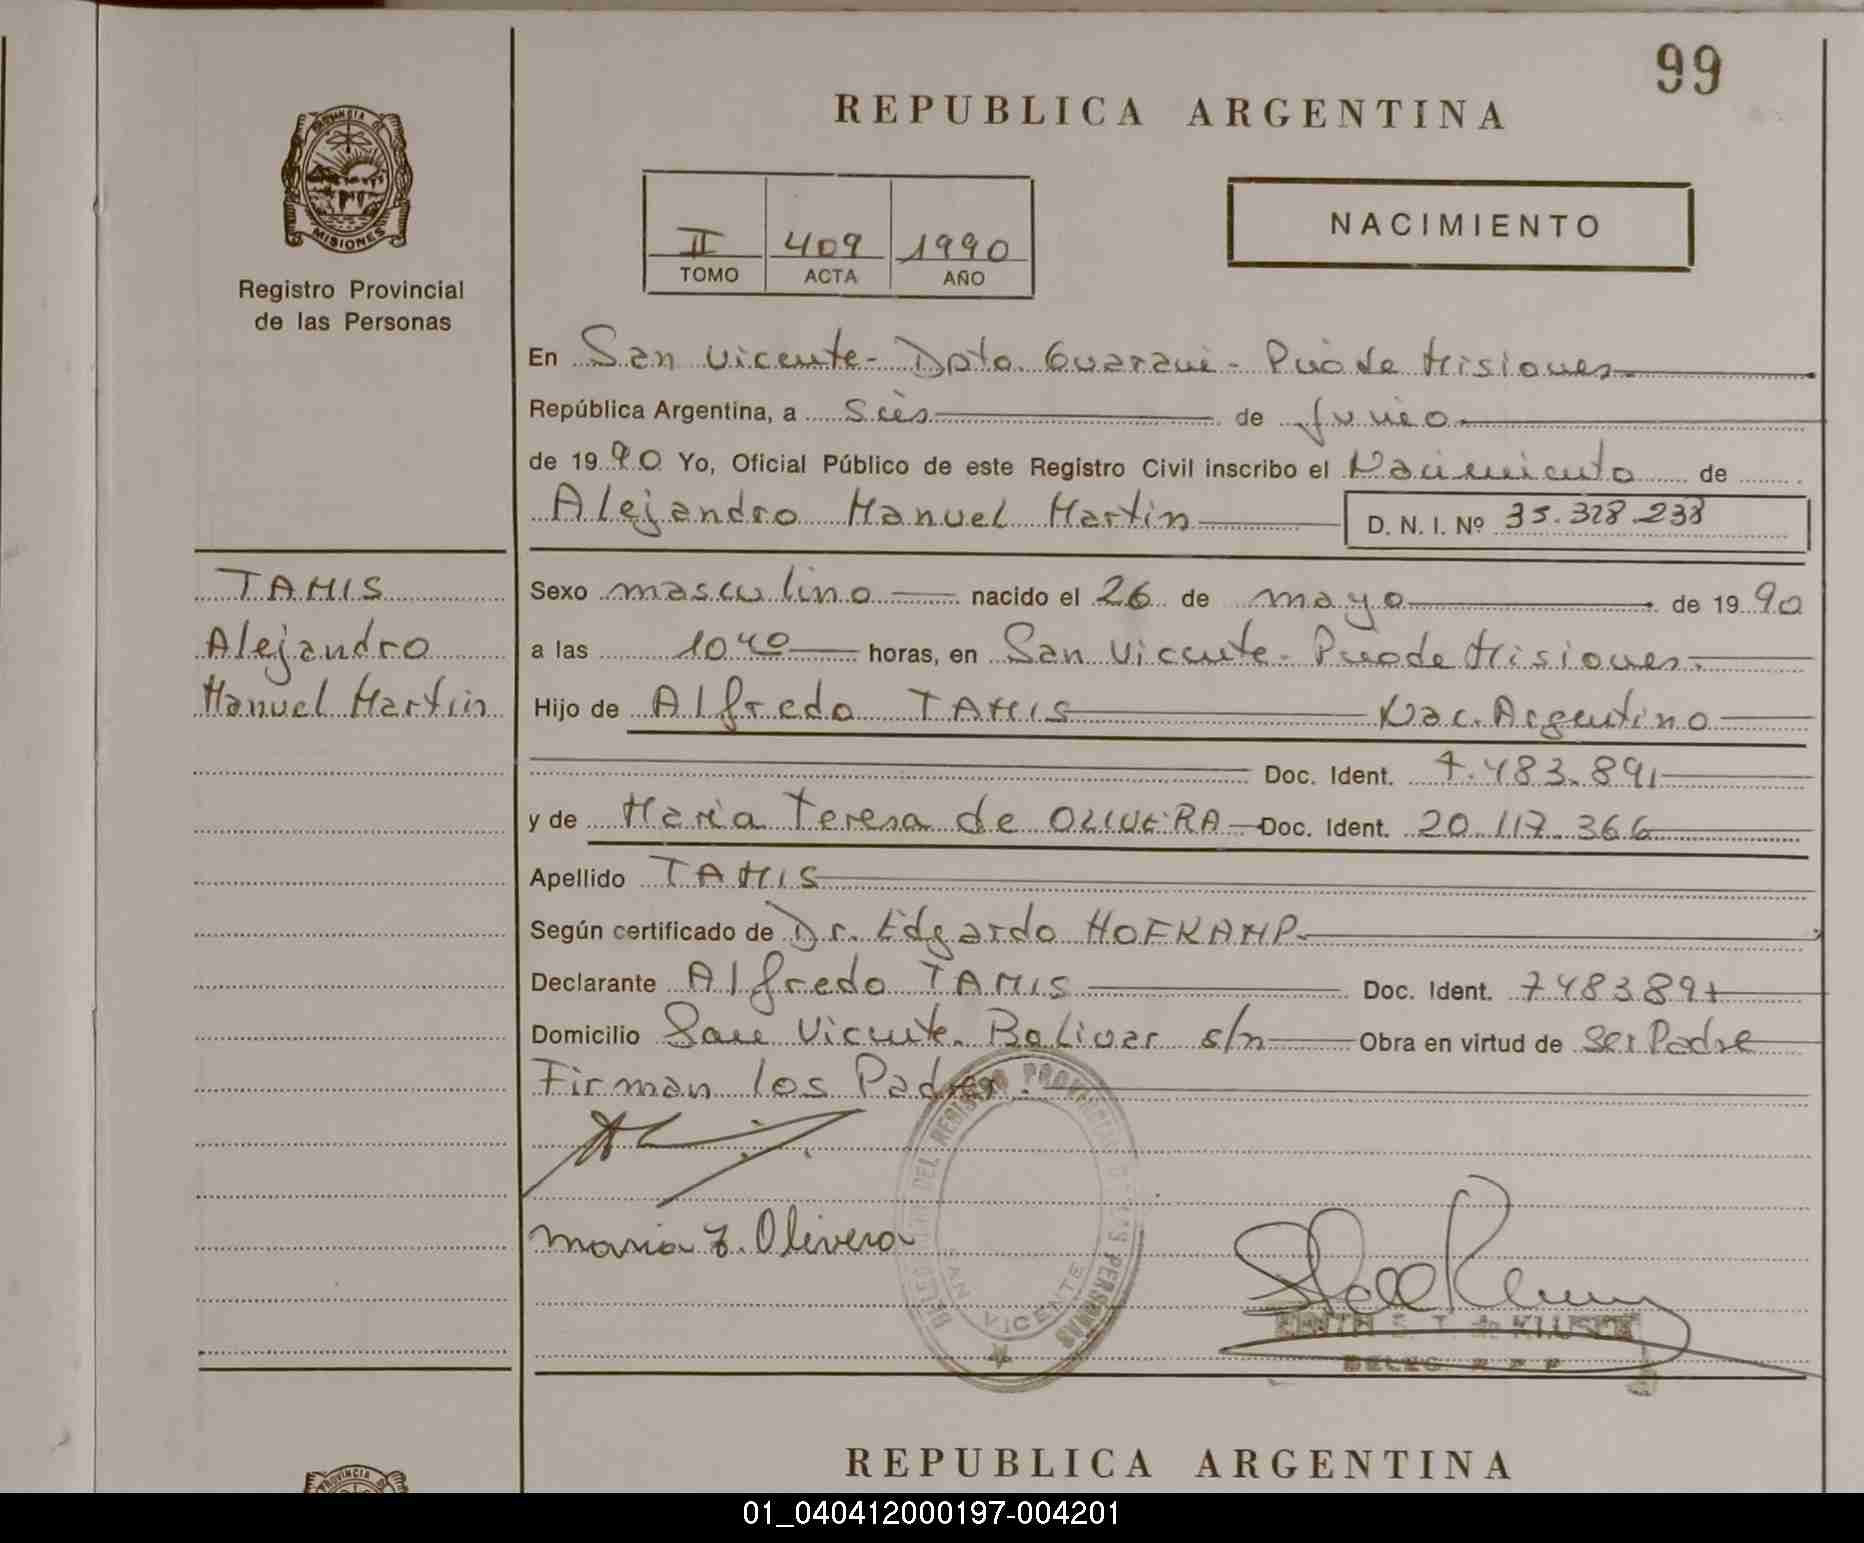 99
REPUBLICA ARGENTINA
PROVINCIA DE
MISIONES
Registro Provincial
de las Personas
II 409 1990
TOMO ACTA AÑO
NACIMIENTO
En San Vicente - Dpto. Guarani - Pcia de Misiones
República Argentina, a Seis de Junio
de 1990 Yo, Oficial Público de este Registro Civil inscribo el Nacimiento de
Alejandro Manuel Martin D. N. I. Nº 35.328.238
TAMIS
Alejandro
Manuel Martin
Sexo masculino nacido el 26 de mayo de 1990
a las 10 40 horas, en San Vicente - Pcia de Misiones.
Hijo de Alfredo TAMIS Nac. Argentino
Doc. Ident. 7.483.891
y de Maria Teresa de OLIVERA Doc. Ident. 20.117.366
Apellido TAMIS
Según certificado de Dr. Edgardo HOFKAMP
Declarante Alfredo TAMIS Doc. Ident. 7483891
Domicilio San Vicente. Bolivar s/n Obra en virtud de ser Padre
Firman los Padres.
Maria T. Olivera
DEL REGISTRO PROVINCIAL DE LAS PERSONAS
SAN VICENTE
REPUBLICA ARGENTINA
PROVINCIA DE
01_040412000197-004201